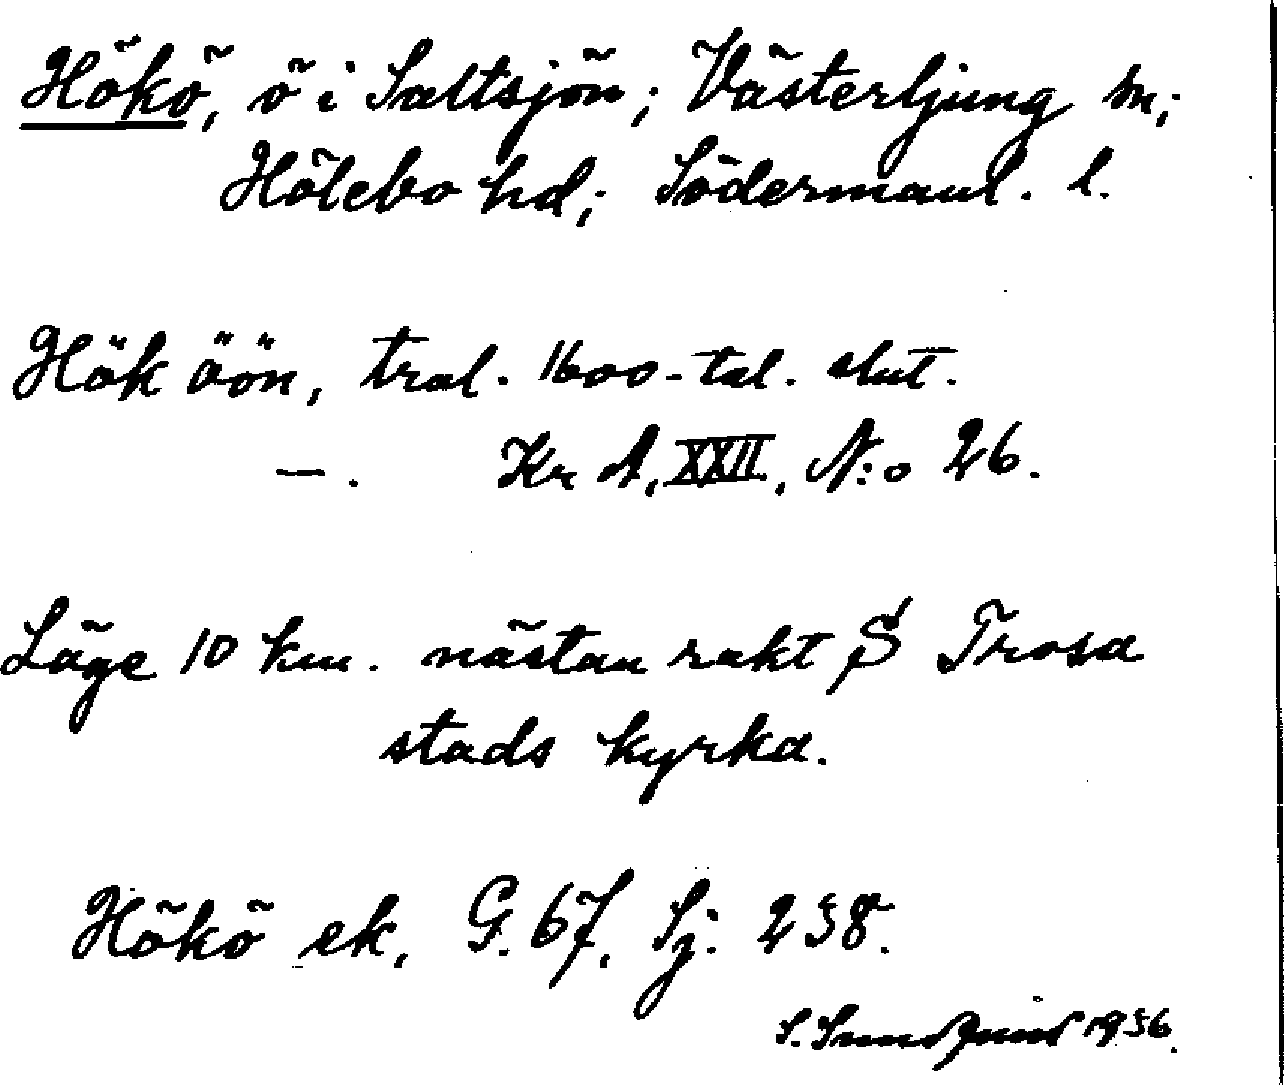 Hökö, ö i Saltsjön; Västerljung sn;
Hölebo hd; Södermanl. l.
Hök öön, tral. 1600-tal. slut.
—. Kr A, XXII, N:o 26.
Läge 10 km. nästan rakt S Trosa
stads kyrka.
Hökö ek, G. 67, Sj: 238.
S. Sundquist 1936.